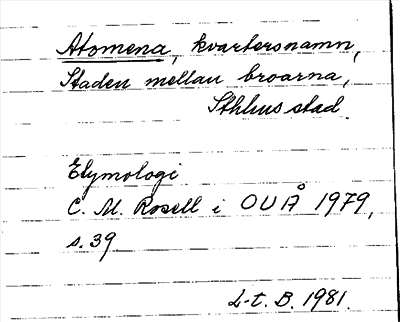 Atomena, kvartersnamn,
Staden mellan broarna,
Sthlms stad.
Etymologi
C. M. Rosell i OUÅ 1979,
s. 39
L-t. B. 1981.